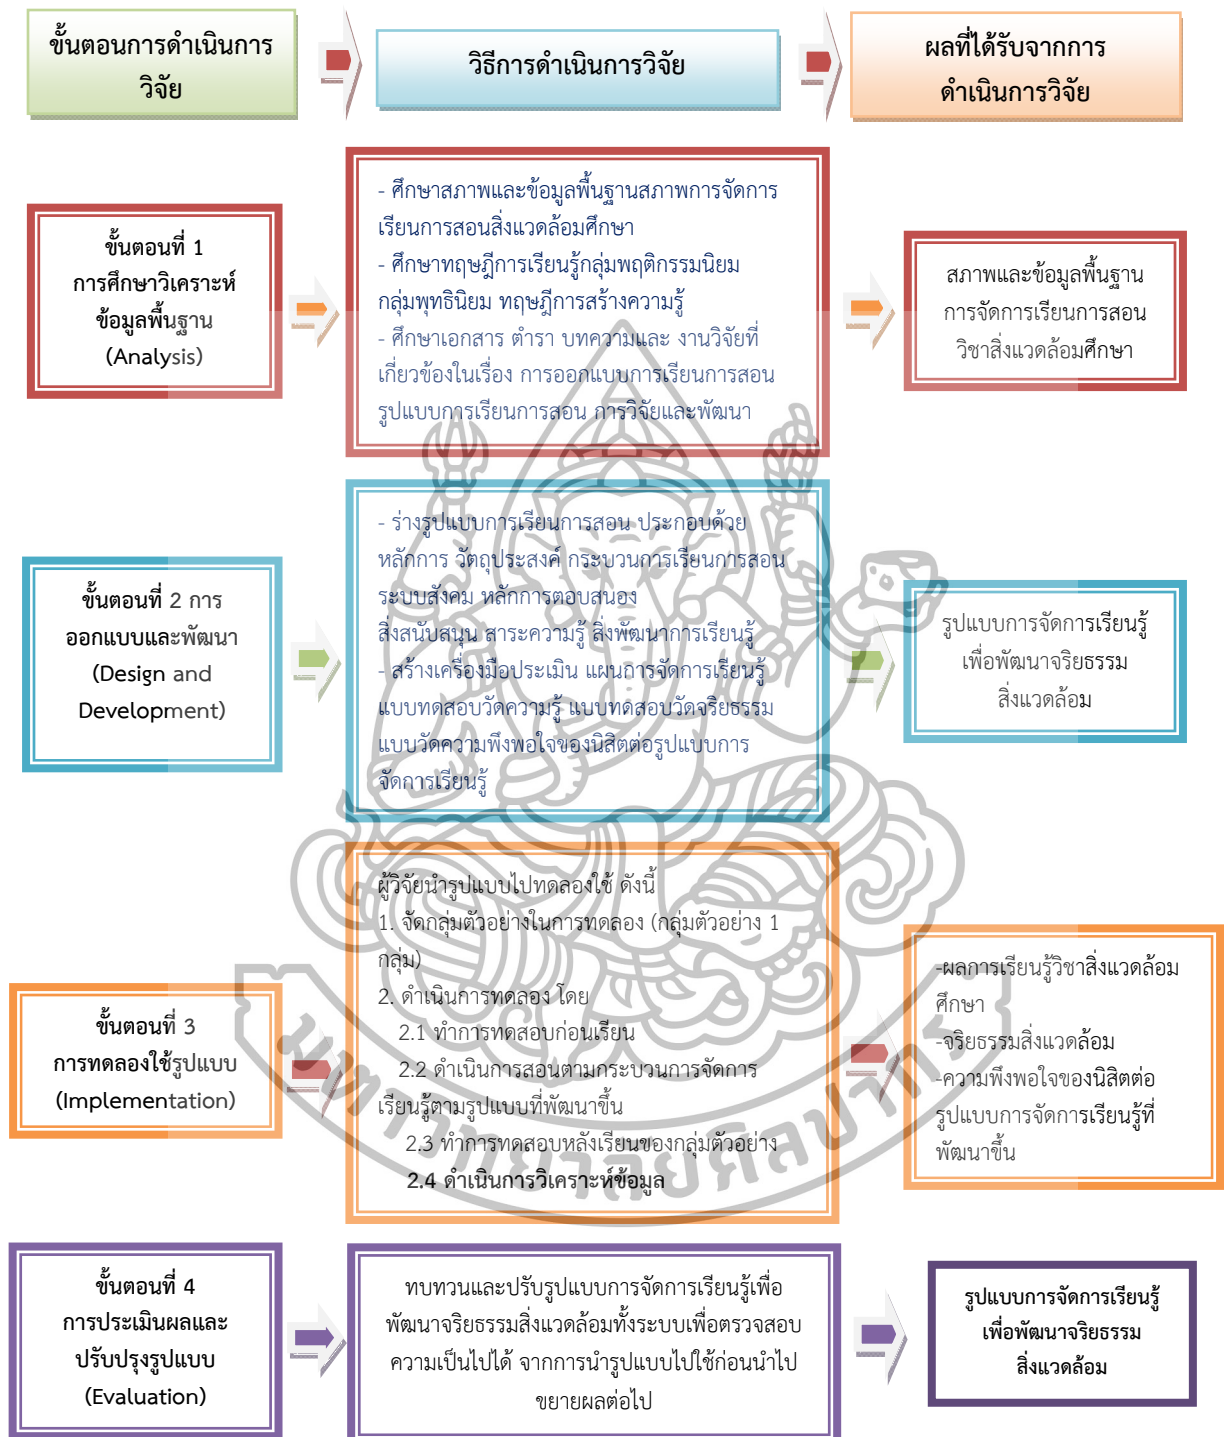 ขั้นตอนการดำเนินการ
วิจัย
วิธีการดำเนินการวิจัย
ผลที่ได้รับจากการ
ดำเนินการวิจัย
ขั้นตอนที่ 1
การศึกษาวิเคราะห์
ข้อมูลพื้นฐาน
(Analysis)
- ศึกษาสภาพและข้อมูลพื้นฐานสภาพการจัดการ
เรียนการสอนสิ่งแวดล้อมศึกษา
- ศึกษาทฤษฎีการเรียนรู้กลุ่มพฤติกรรมนิยม
กลุ่มพุทธินิยม ทฤษฎีการสร้างความรู้
- ศึกษาเอกสาร ตำรา บทความและ งานวิจัยที่
เกี่ยวข้องในเรื่อง การออกแบบการเรียนการสอน
รูปแบบการเรียนการสอน การวิจัยและพัฒนา
สภาพและข้อมูลพื้นฐาน
การจัดการเรียนการสอน
วิชาสิ่งแวดล้อมศึกษา
ขั้นตอนที่ 2 การ
ออกแบบและพัฒนา
(Design and
Development)
- ร่างรูปแบบการเรียนการสอน ประกอบด้วย
หลักการ วัตถุประสงค์ กระบวนการเรียนการสอน
ระบบสังคม หลักการตอบสนอง
สิ่งสนับสนุน สาระความรู้ สิ่งพัฒนาการเรียนรู้
- สร้างเครื่องมือประเมิน แผนการจัดการเรียนรู้
แบบทดสอบวัดความรู้ แบบทดสอบวัดจริยธรรม
แบบวัดความพึงพอใจของนิสิตต่อรูปแบบการ
จัดการเรียนรู้
รูปแบบการจัดการเรียนรู้
เพื่อพัฒนาจริยธรรม
สิ่งแวดล้อม
ขั้นตอนที่ 3
การทดลองใช้รูปแบบ
(Implementation)
ผู้วิจัยนำรูปแบบไปทดลองใช้ ดังนี้
1. จัดกลุ่มตัวอย่างในการทดลอง (กลุ่มตัวอย่าง 1
กลุ่ม)
2. ดำเนินการทดลอง โดย
2.1 ทำการทดสอบก่อนเรียน
2.2 ดำเนินการสอนตามกระบวนการจัดการ
เรียนรู้ตามรูปแบบที่พัฒนาขึ้น
2.3 ทำการทดสอบหลังเรียนของกลุ่มตัวอย่าง
2.4 ดำเนินการวิเคราะห์ข้อมูล
-ผลการเรียนรู้วิชาสิ่งแวดล้อม
ศึกษา
-จริยธรรมสิ่งแวดล้อม
-ความพึงพอใจของนิสิตต่อ
รูปแบบการจัดการเรียนรู้ที่
พัฒนาขึ้น
มหาวิทยาลัยศิลปากร
ขั้นตอนที่ 4
การประเมินผลและ
ปรับปรุงรูปแบบ
(Evaluation)
ทบทวนและปรับรูปแบบการจัดการเรียนรู้เพื่อ
พัฒนาจริยธรรมสิ่งแวดล้อมทั้งระบบเพื่อตรวจสอบ
ความเป็นไปได้ จากการนำรูปแบบไปใช้ก่อนนำไป
ขยายผลต่อไป
รูปแบบการจัดการเรียนรู้
เพื่อพัฒนาจริยธรรม
สิ่งแวดล้อม